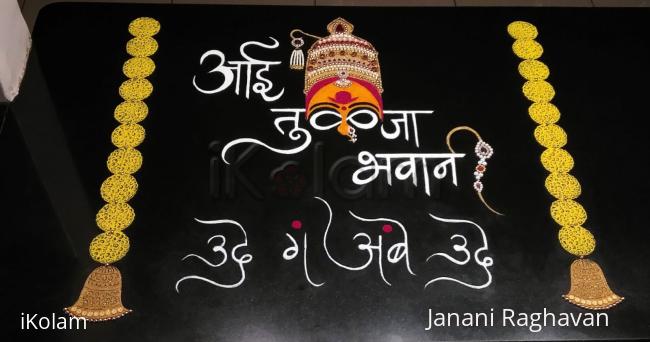 आई
तुळजा
भवानी
उदे गं अंबे उदे
iKolam
iKolam
Janani Raghavan